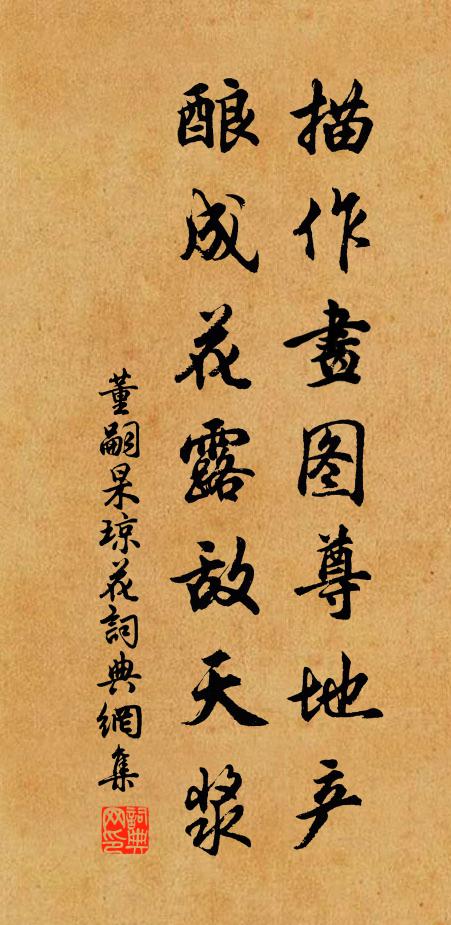 描作畫图尊地产
酿成花露敌天浆
董嗣杲琼花詞典網集
詞典网印